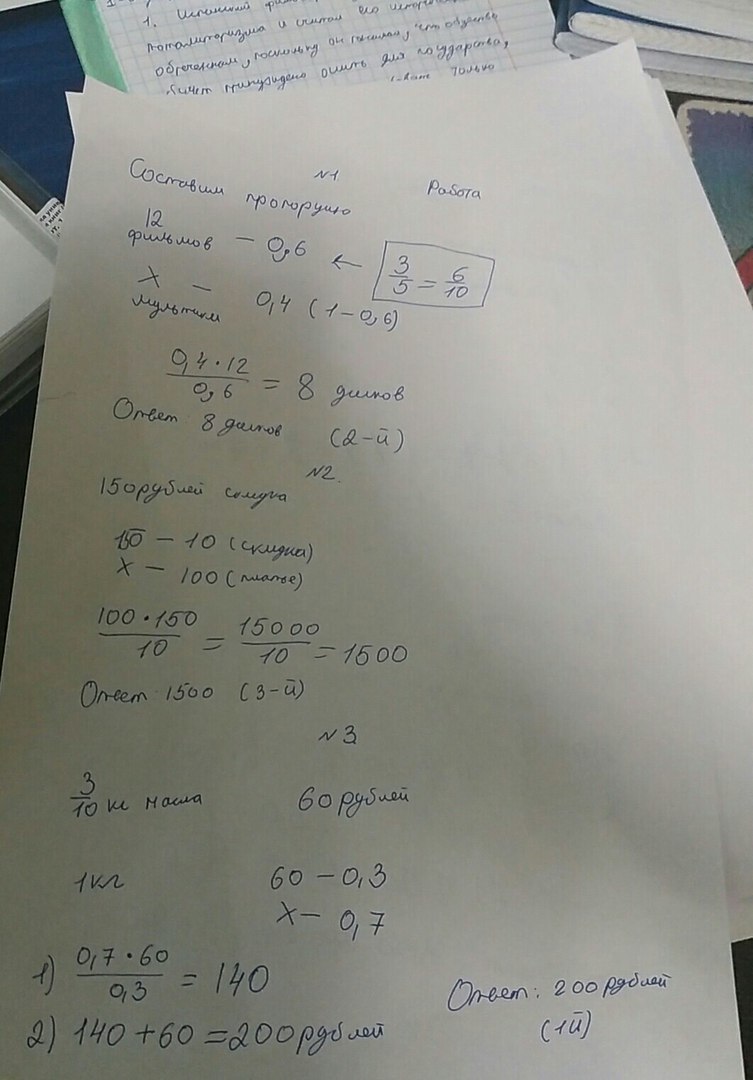 1. Испанский
тоталитаризма и считал его
обреченным, поскольку он
для государства,
только
Работа
N1
Составим пропорцию
12
фильмов — 0,6 ← 3/5 = 6/10
x —
мультики 0,4 (1-0,6)
0,4·12/0,6 = 8 дисков
Ответ 8 дисков (2-й)
N2.
150 рублей скидка
150 — 10 (скидка)
x — 100 (платье)
100·150/10 = 15000/10 = 1500
Ответ 1500 (3-й)
N3
3/10 кг масла 60 рублей
1 кг 60 — 0,3
x — 0,7
1) 0,7·60/0,3 = 140
2) 140+60=200 рублей
Ответ: 200 рублей
(1й)